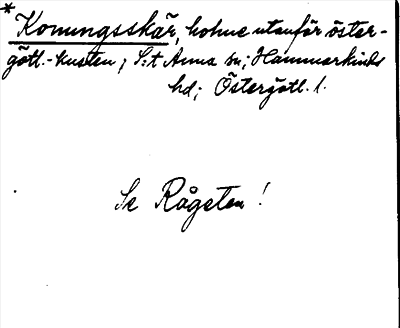 * Konungsskär, holme utanför öster-
götl.-kusten, S:t Anna sn; Hammarkinds
hd; Östergötl. l.
Se Rågsten!